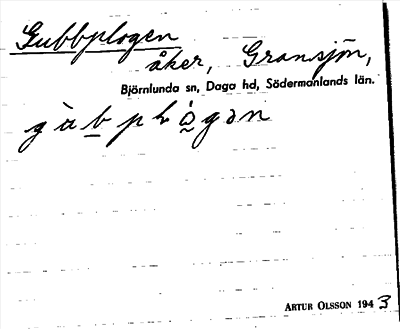 Gubbplogen
åker, Gransjön,
Björnlunda sn, Daga hd, Södermanlands län.
ARTUR OLSSON 1943